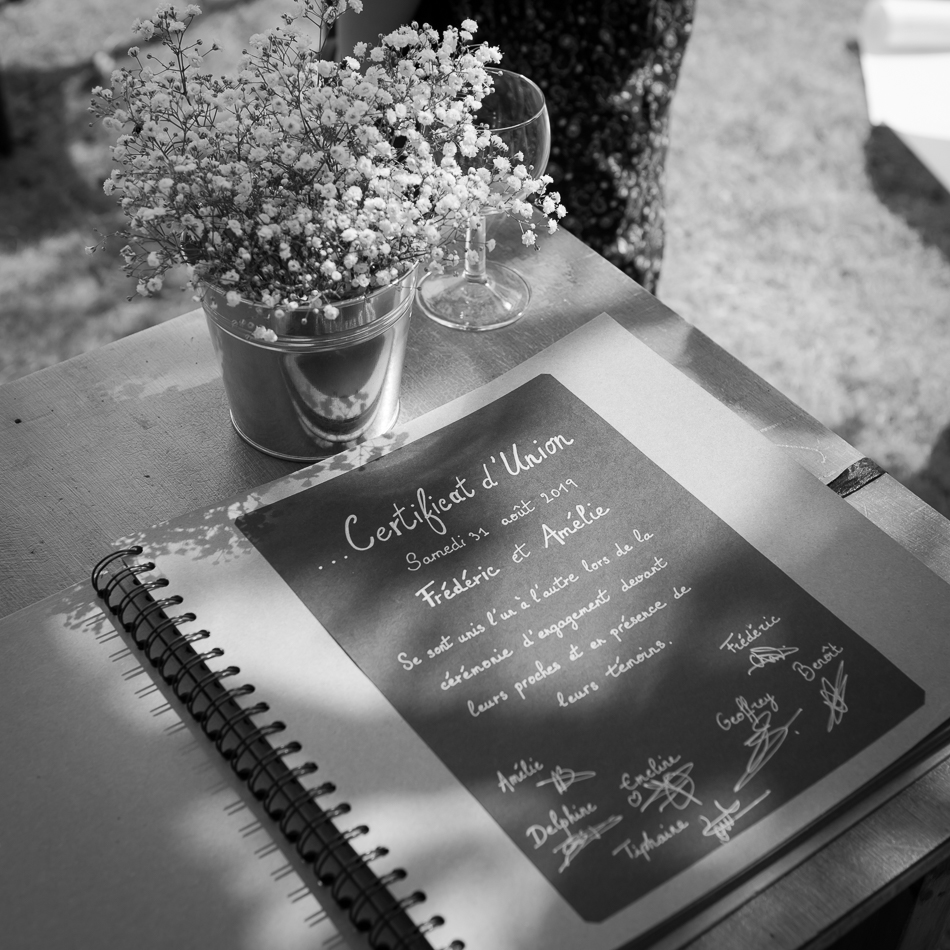 ...Certificat d'Union
Samedi 31 août 2019
Frédéric et Amélie
Se sont unis l'un à l'autre lors de la
cérémonie d'engagement devant
leurs proches et en présence de
leurs témoins.
Frédéric
Benoît
Geoffrey
Amélie
Emeline
Delphine
Tiphaine